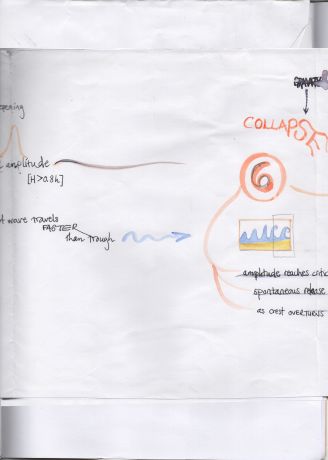 COLLAPSE
6
amplitude
[H>0.8h]
wave travels
FASTER
than trough
amplitude reaches critic
spontaneous release
as crest OVERTURNS